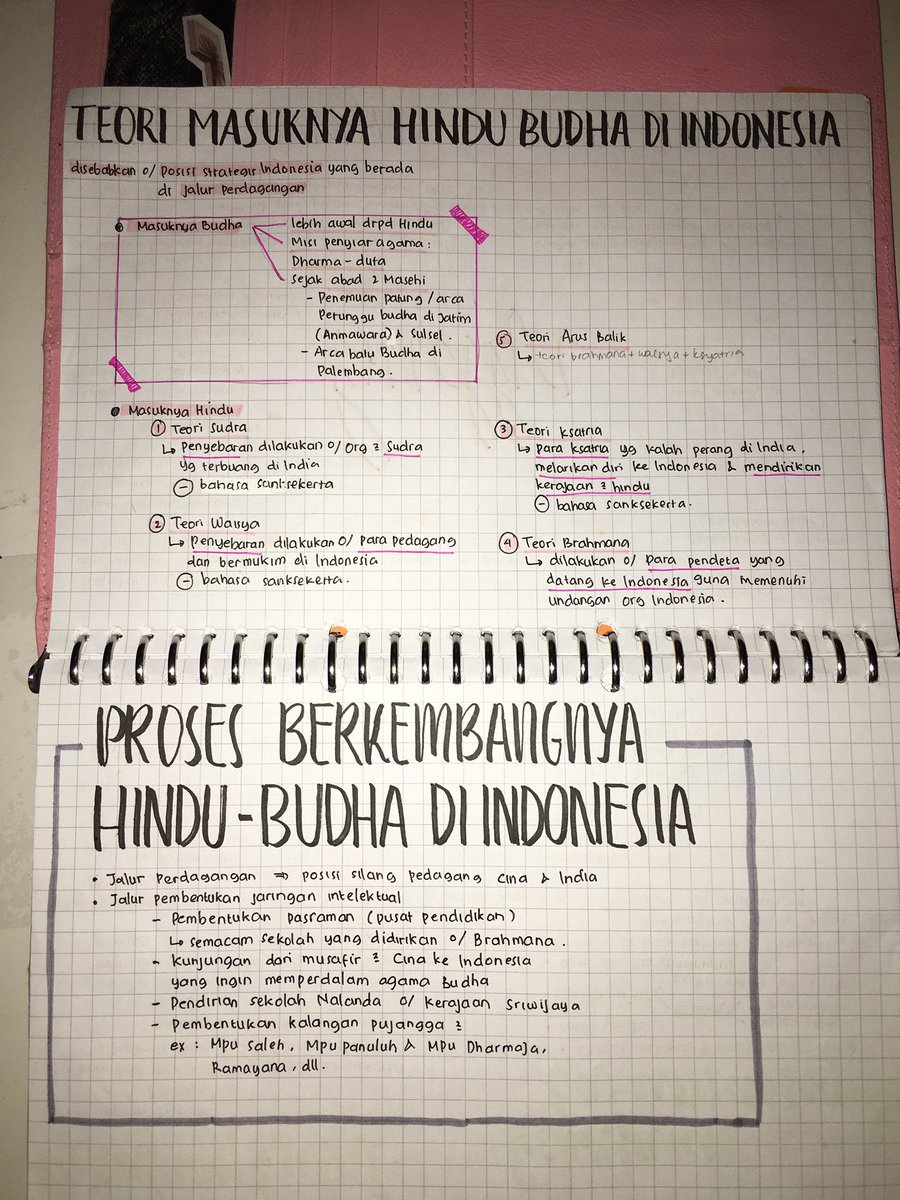 TEORI MASUKNYA HINDU BUDHA DI INDONESIA
disebabkan o/ posisi strategis Indonesia yang berada
di jalur perdagangan
Masuknya Budha
lebih awal drpd Hindu
Misi penyiar agama :
Dharma - duta
sejak abad 2 Masehi
- Penemuan patung / arca
Perunggu budha di Jatim
(Anmawara) & Sulsel.
- Arca batu Budha di
Palembang.
Masuknya Hindu
1 Teori Sudra
↳ Penyebaran dilakukan o/ org² Sudra
yg terbuang di India
(-) bahasa sanksekerta
2 Teori Waisya
↳ Penyebaran dilakukan o/ para pedagang
dan bermukim di Indonesia
(-) bahasa sanksekerta.
5 Teori Arus Balik
↳ teori brahmana + waisya + ksyatria
3 Teori Ksatria
↳ para ksatria yg kalah perang di India,
melarikan diri ke Indonesia & mendirikan
kerajaan² hindu
(-) bahasa sanksekerta.
4 Teori Brahmana
↳ dilakukan o/ para pendeta yang
datang ke Indonesia guna memenuhi
undangan org Indonesia.
PROSES BERKEMBANGNYA
HINDU - BUDHA DI INDONESIA
• Jalur perdagangan ⇒ posisi silang pedagang cina & India
• Jalur pembentukan jaringan intelektual
- Pembentukan pasraman (pusat pendidikan)
↳ semacam sekolah yang didirikan o/ Brahmana.
- Kunjungan dari musafir² Cina ke Indonesia
yang ingin memperdalam agama Budha
- Pendirian sekolah Nalanda o/ kerajaan Sriwijaya
- Pembentukan kalangan pujangga²
ex : Mpu saleh, Mpu panuluh & Mpu Dharmaja,
Ramayana, dll.